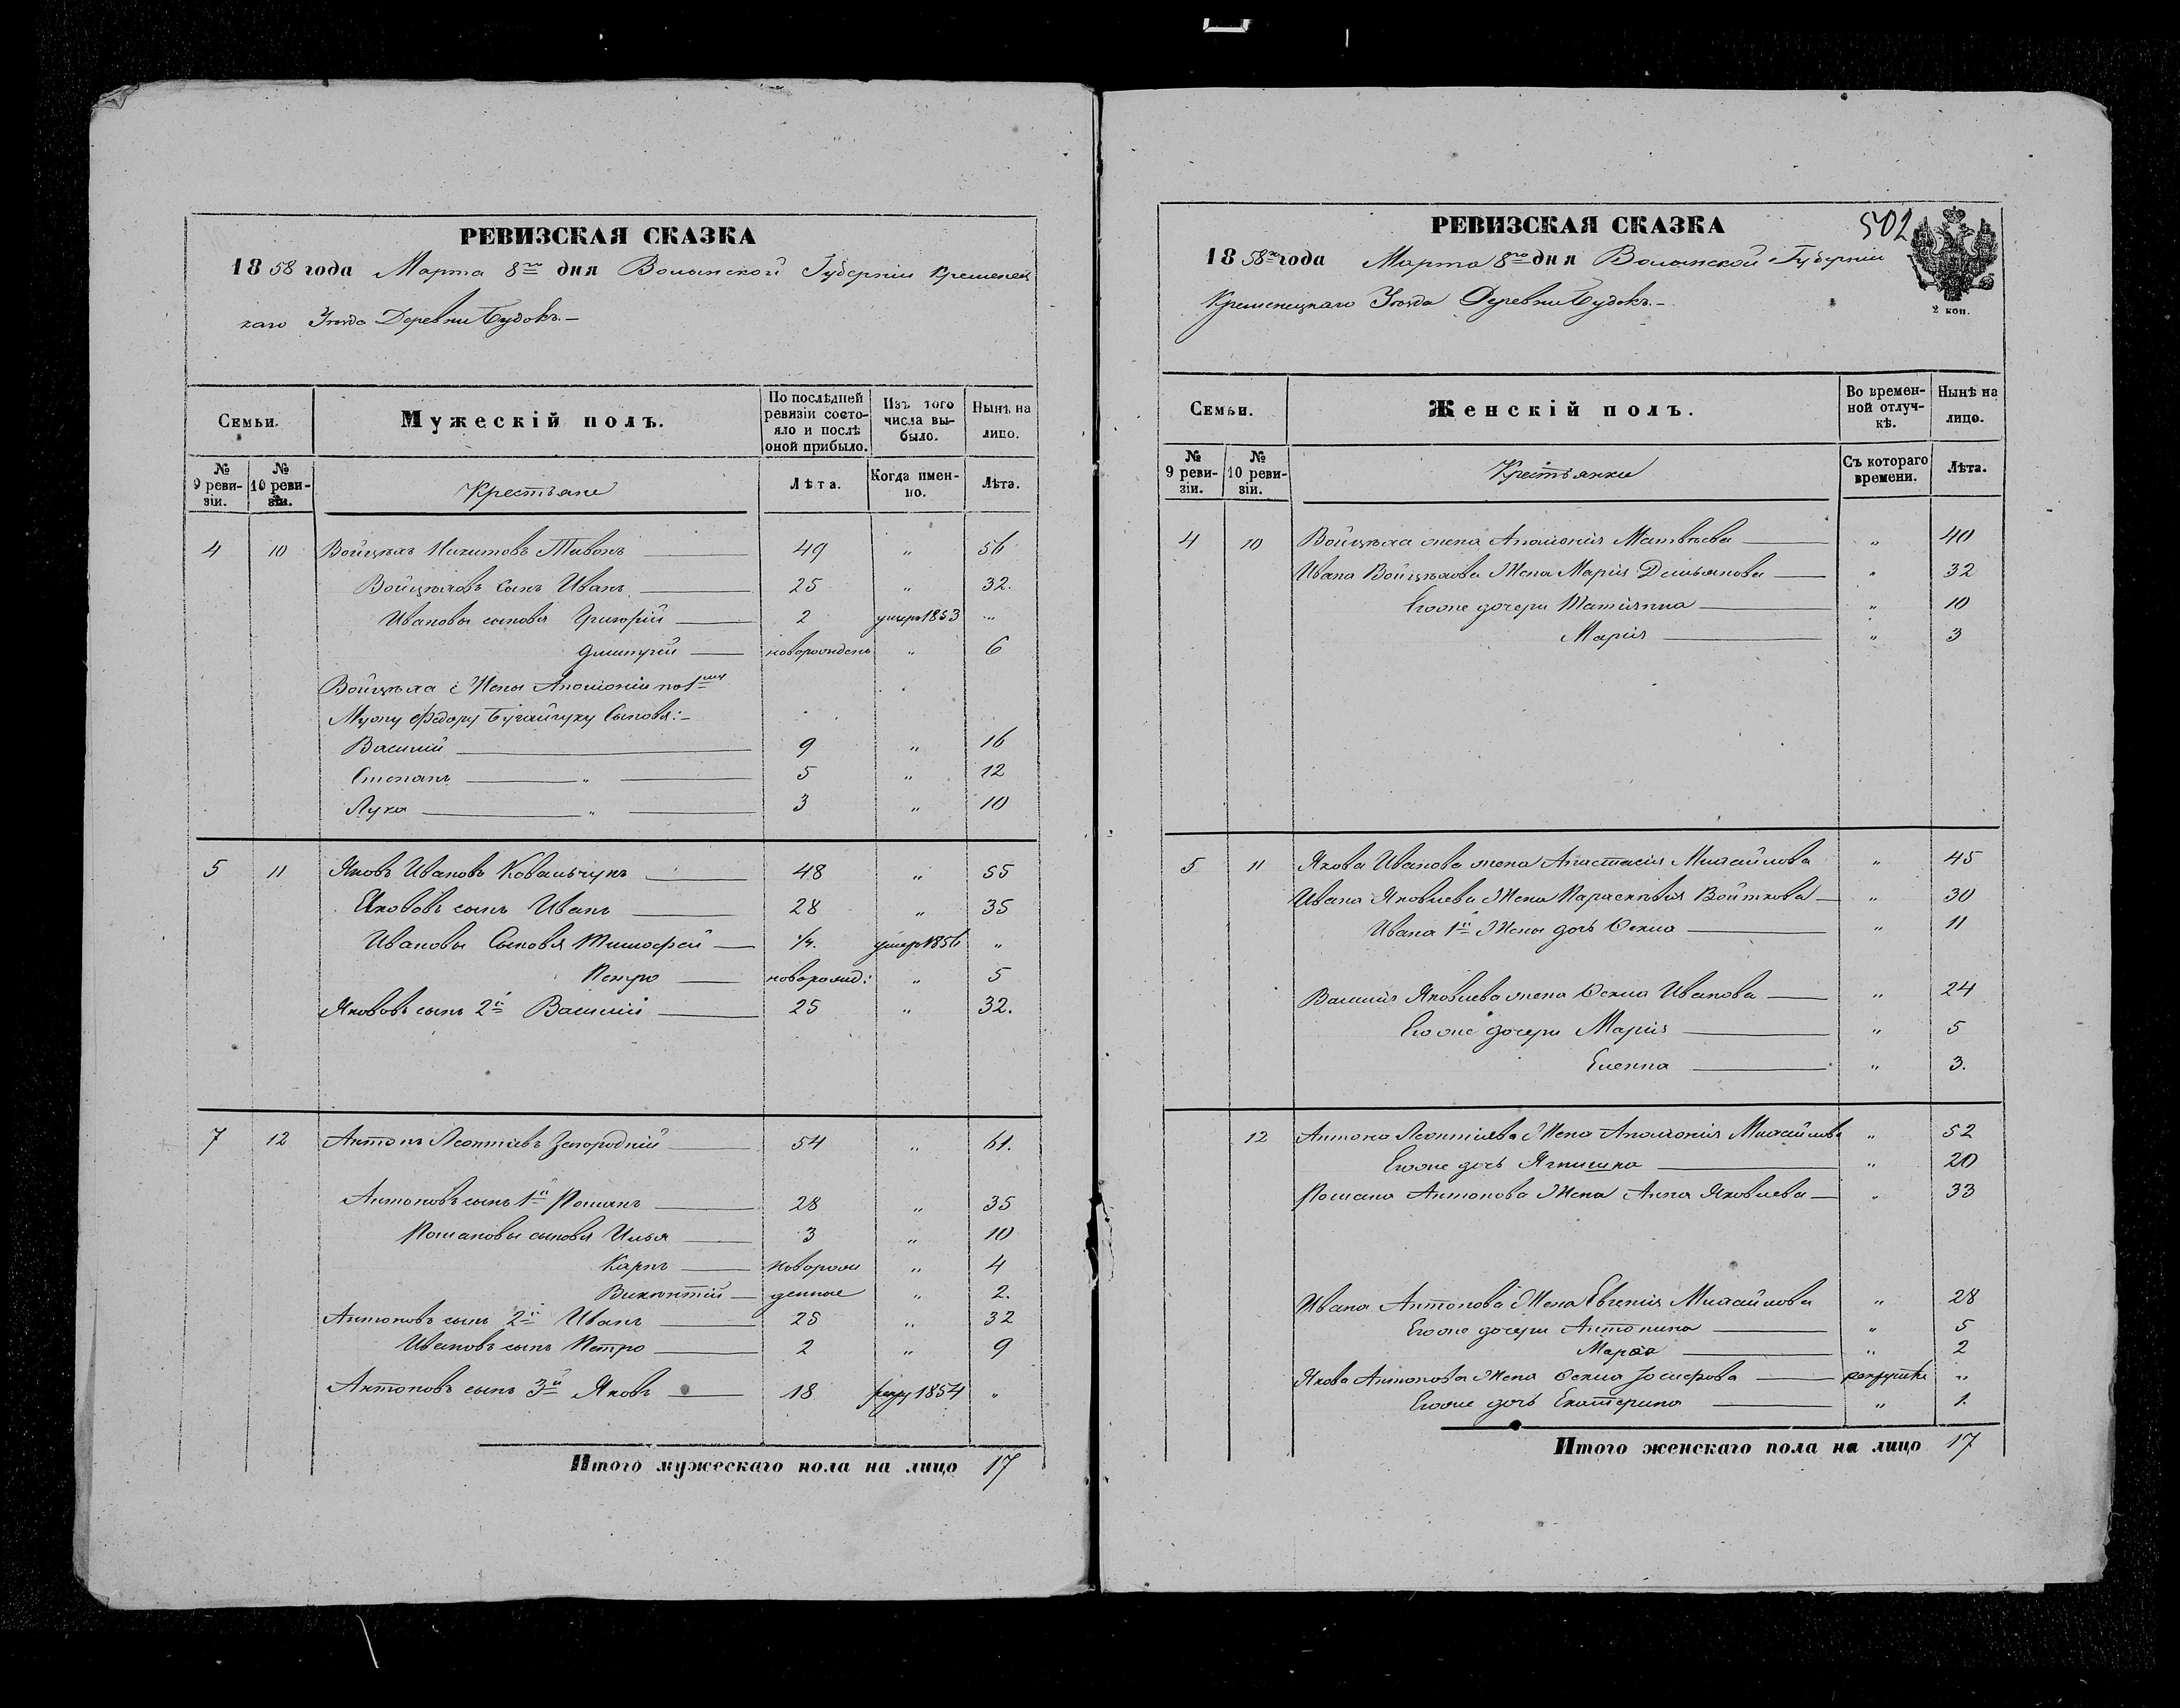 РЕВИЗСКАЯ СКАЗКА
1858 года Марта 8го дня Волынской Губерніи Кременец
каго Уезда Деревни Будокъ.–
Семьи.
Мужескій полъ.
По послѣдней ревизіи состояло и послѣ оной прибыло.
Изъ того числа выбыло.
Нынѣ на лицо.
№ 9 ревизіи.
№ 10 ревизіи.
Крестьяне
Лѣта.
Когда именно.
Лѣта.
4 10 Войцѣхъ Никитовъ 49 " 56
Войцѣховъ сынъ Иванъ 25 " 32.
Ивановы сыновя Григорій 2 умеръ 1853 "
Дмитрій новорожденъ " 6
Войцѣха і Жены Аполоніи по 1му
Мужу Федору Бугайчуку Сыновя:–
Василій 9 " 16
Степанъ " 5 " 12
Лука " 3 " 10
5 11 Яковъ Ивановъ Ковальчукъ 48 " 55
Яковъ сынъ Иванъ 28 " 35
Ивановы Сыновя Тимофей умеръ 1856 "
Петро новорожд: " 5
Яковъ сынъ 2й Василій 25 " 32.
7 12 Антонъ Леонтіевъ Загородній 54 " 61.
Антоновъ сынъ 1й Романъ 28 " 35
Романовы сыновя Илья 3 " 10
Карпъ новорож " 4
Викентій денные " 2.
Антоновъ сынъ 2й Иванъ 25 " 32
Ивановъ сынъ Петро 2 " 9
Антоновъ сынъ 3й Яковъ 18 рекру 1854 "
Итого мужескаго пола на лицо 17
РЕВИЗСКАЯ СКАЗКА
502
1858 года Марта 8го дня Волынской Губерніи
Кременецкаго Уезда Деревни Будокъ.–
2 коп.
Семьи.
Женскій полъ.
Во временной отлучкѣ.
Нынѣ на лицо.
№ 9 ревизіи.
№ 10 ревизіи.
Крестьянки
Съ котораго времени.
Лѣта.
4 10 Войцѣха жена Аполонія Матвѣева " 40
Ивана Войцѣхова Жена Марія Демьянова " 32
Егоже дочери Татіянна " 10
Марія " 3
5 11 Якова Иванова жена Анастасія Михайлова " 45
Ивана Яковлева Жена Параскевія Войткова " 30
Ивана 1й Жены дочь Оекла " 11
Василія Яковлева жена Оекла Иванова " 24
Егоже дочери Марія " 5
Еленна " 3.
12 Антона Леонтіева Жена Аполонія Михайлова " 52
Егоже дочь Ягнишка " 20
Романа Антонова Жена Анна Яковлева " 33
Ивана Антонова Жена Евгенія Михайлова " 28
Егоже дочери Антонина " 5
Марія " 2
Якова Антонова Жена Оекла Іосифова рекрутка "
Егоже дочь Екатерина " 1.
Итого женскаго пола на лицо 17